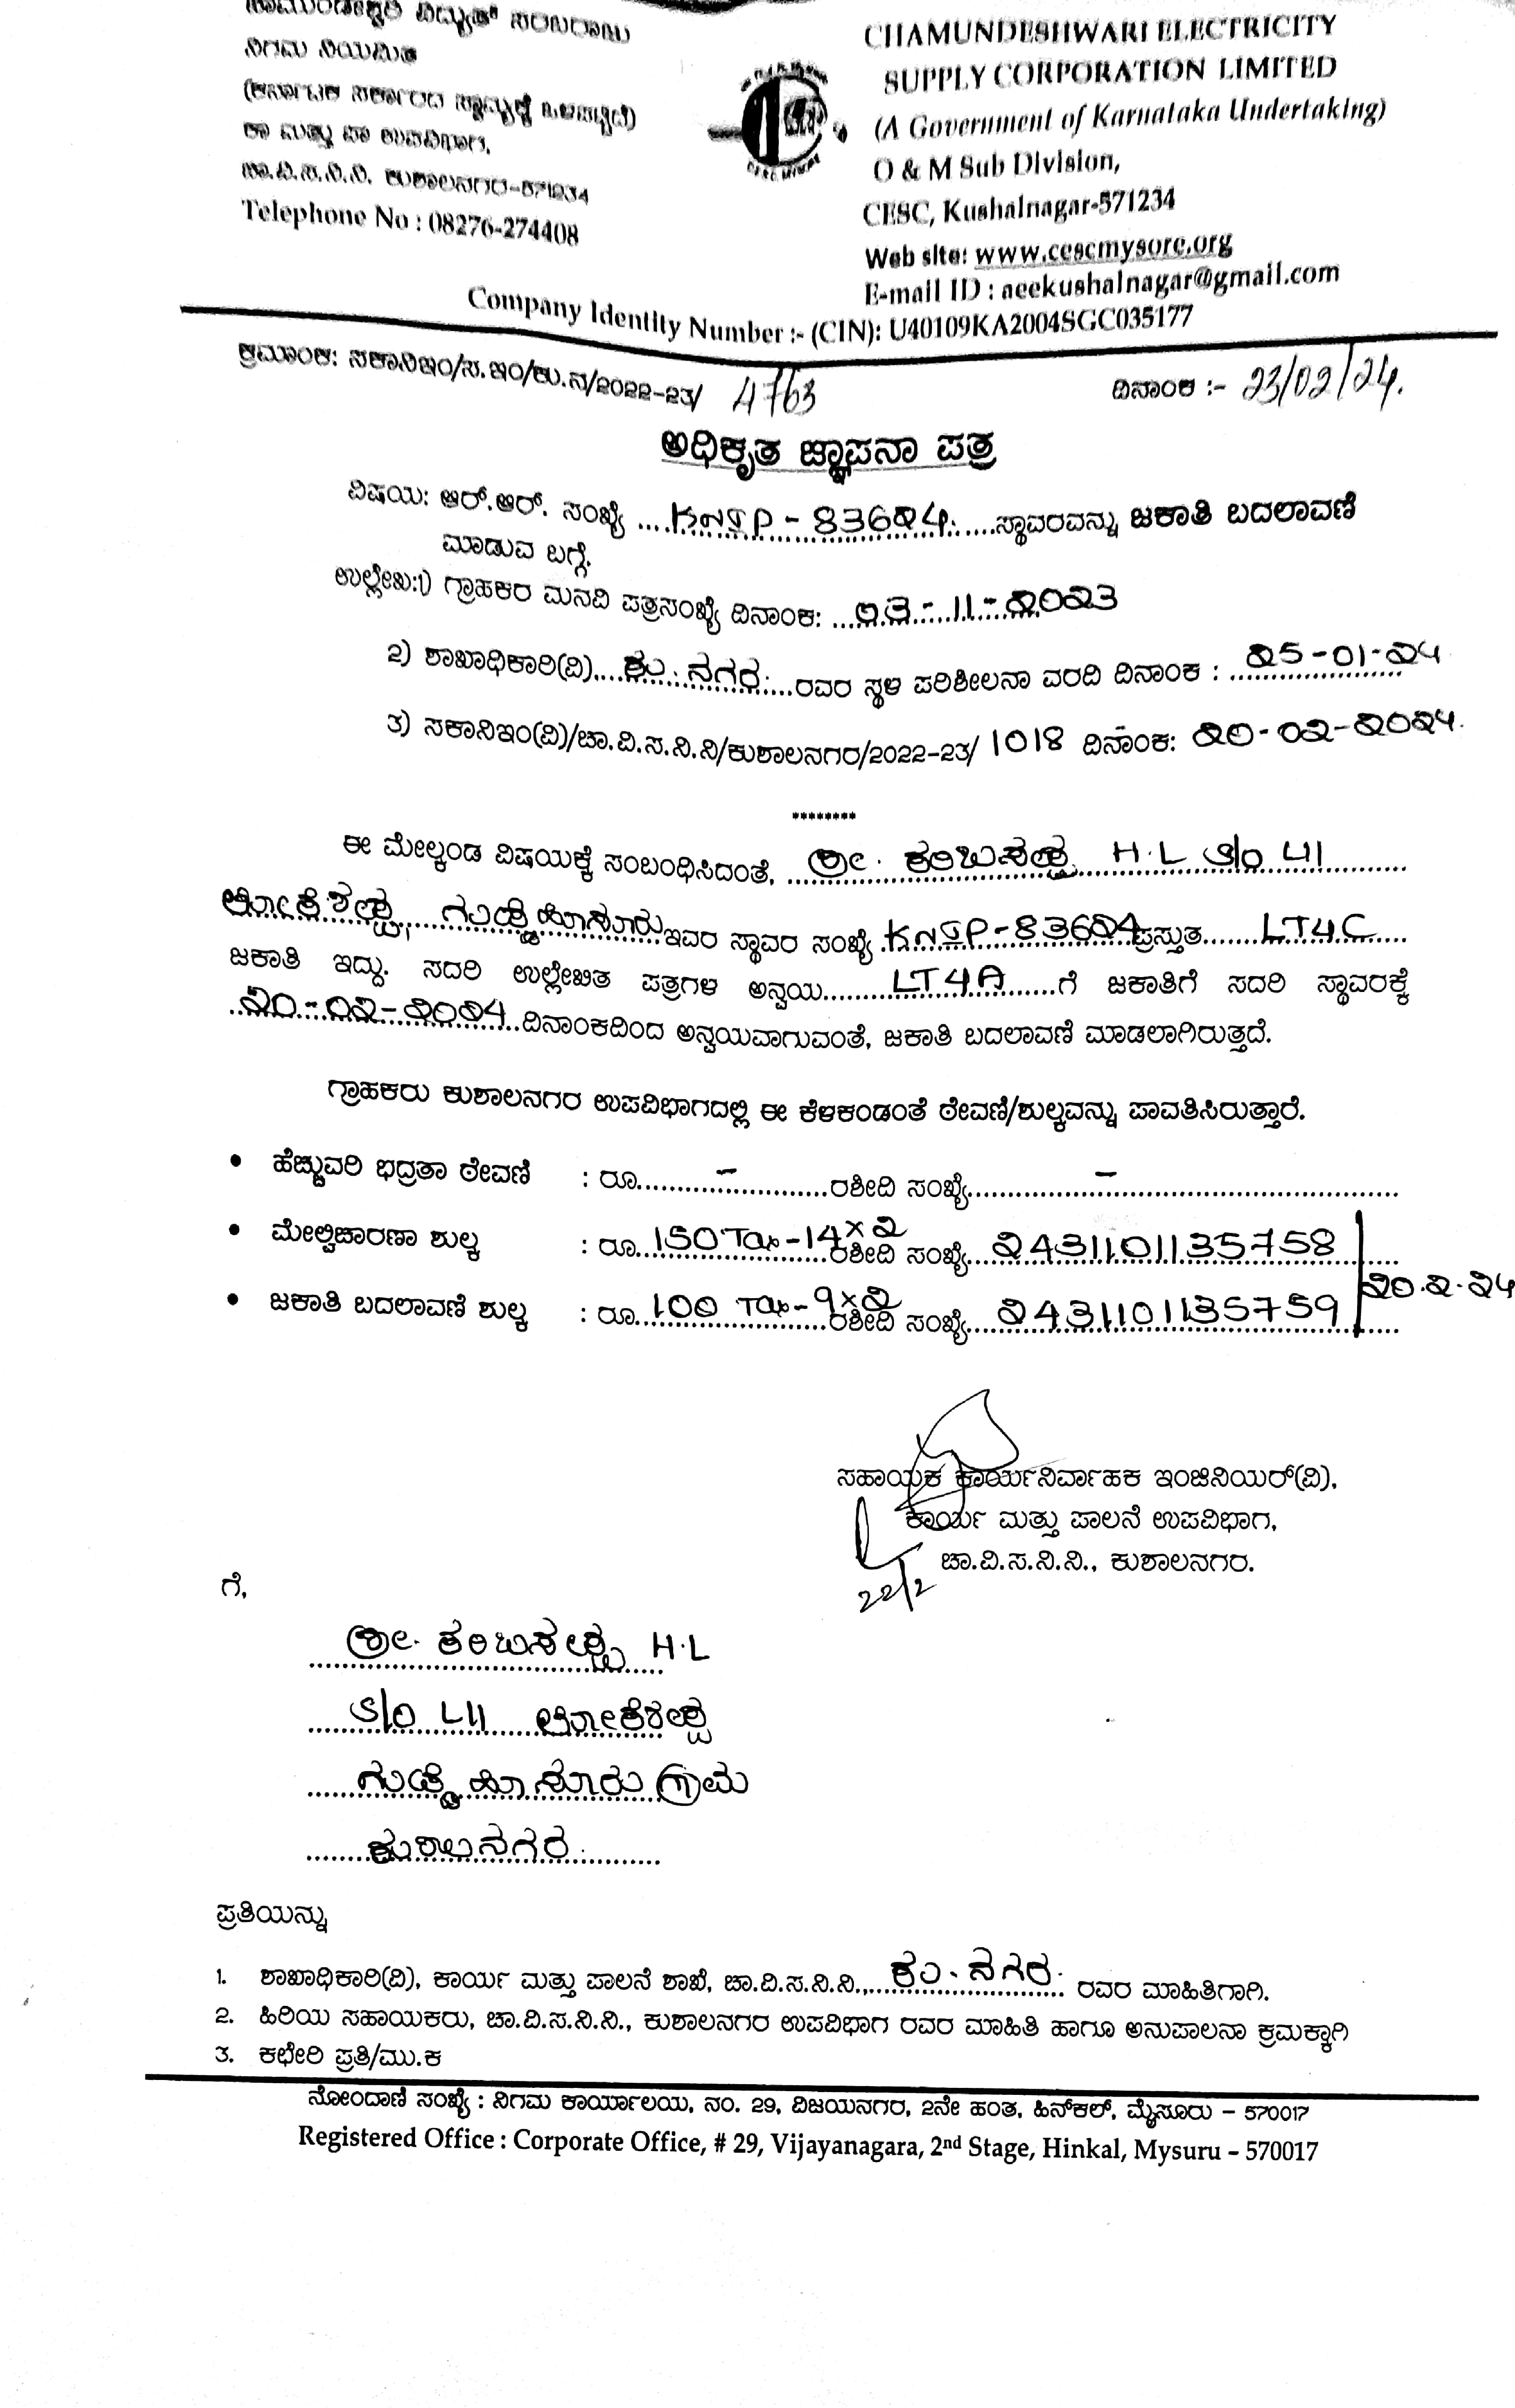 ಚಾಮುಂಡೇಶ್ವರಿ ವಿದ್ಯುತ್ ಸರಬರಾಜು
ನಿಗಮ ನಿಯಮಿತ
(ಕರ್ನಾಟಕ ಸರ್ಕಾರದ ಸ್ವಾಮ್ಯಕ್ಕೆ ಒಳಪಟ್ಟಿದೆ)
ಕಾ ಮತ್ತು ಪಾ ಉಪವಿಭಾಗ,
ಚಾ.ವಿ.ಸ.ನಿ.ನಿ. ಕುಶಾಲನಗರ-571234
Telephone No : 08276-274408
CHAMUNDESHWARI ELECTRICITY
SUPPLY CORPORATION LIMITED
(A Government of Karnataka Undertaking)
O & M Sub Division,
CESC, Kushalnagar-571234
Web site: www.cescmysore.org
E-mail ID : aeekushalnagar@gmail.com
Company Identity Number :- (CIN): U40109KA2004SGC035177
ಕ್ರಮಾಂಕ: ಸಕಾನಿಇಂ/ಸ.ಇಂ/ಕು.ನ/2022-23/ 4763 ದಿನಾಂಕ :- 23/02/24.
ಅಧಿಕೃತ ಜ್ಞಾಪನಾ ಪತ್ರ
ವಿಷಯ: ಆರ್.ಆರ್. ಸಂಖ್ಯೆ ....KNIP-83624......ಸ್ಥಾವರವನ್ನು ಜಕಾತಿ ಬದಲಾವಣೆ
ಮಾಡುವ ಬಗ್ಗೆ.
ಉಲ್ಲೇಖ:1) ಗ್ರಾಹಕರ ಮನವಿ ಪತ್ರಸಂಖ್ಯೆ ದಿನಾಂಕ: ...03-11-2023
2) ಶಾಖಾಧಿಕಾರಿ(ವಿ)....ಕು.ನಗರ....ರವರ ಸ್ಥಳ ಪರಿಶೀಲನಾ ವರದಿ ದಿನಾಂಕ : 25-01-24
3) ಸಕಾನಿಇಂ(ವಿ)/ಚಾ.ವಿ.ಸ.ನಿ.ನಿ/ಕುಶಾಲನಗರ/2022-23/ 1018 ದಿನಾಂಕ: 20-02-2024.
********
ಈ ಮೇಲ್ಕಂಡ ವಿಷಯಕ್ಕೆ ಸಂಬಂಧಿಸಿದಂತೆ, ...ಶ್ರೀ. H.L S/o
ಇವರ ಸ್ಥಾವರ ಸಂಖ್ಯೆ KNIP-83624 ಪ್ರಸ್ತುತ.......LT4C
ಜಕಾತಿ ಇದ್ದು. ಸದರಿ ಉಲ್ಲೇಖಿತ ಪತ್ರಗಳ ಅನ್ವಯ.........LT4A......ಗೆ ಜಕಾತಿಗೆ ಸದರಿ ಸ್ಥಾವರಕ್ಕೆ
20-02-2024..ದಿನಾಂಕದಿಂದ ಅನ್ವಯವಾಗುವಂತೆ, ಜಕಾತಿ ಬದಲಾವಣೆ ಮಾಡಲಾಗಿರುತ್ತದೆ.
ಗ್ರಾಹಕರು ಕುಶಾಲನಗರ ಉಪವಿಭಾಗದಲ್ಲಿ ಈ ಕೆಳಕಂಡಂತೆ ಠೇವಣಿ/ಶುಲ್ಕವನ್ನು ಪಾವತಿಸಿರುತ್ತಾರೆ.
• ಹೆಚ್ಚುವರಿ ಭದ್ರತಾ ಠೇವಣಿ : ರೂ.........–.........ರಶೀದಿ ಸಂಖ್ಯೆ.........–.........
• ಮೇಲ್ವಿಚಾರಣಾ ಶುಲ್ಕ : ರೂ...150 Tax-14×2 ರಶೀದಿ ಸಂಖ್ಯೆ...2431101135758
• ಜಕಾತಿ ಬದಲಾವಣೆ ಶುಲ್ಕ : ರೂ...100 Tax-9×2 ರಶೀದಿ ಸಂಖ್ಯೆ...2431101135759 20.2.24
ಸಹಾಯಕ ಕಾರ್ಯನಿರ್ವಾಹಕ ಇಂಜಿನಿಯರ್(ವಿ),
ಕಾರ್ಯ ಮತ್ತು ಪಾಲನೆ ಉಪವಿಭಾಗ,
ಚಾ.ವಿ.ಸ.ನಿ.ನಿ., ಕುಶಾಲನಗರ.
22/2
ಗೆ,
ಶ್ರೀ. H.L
S/o
ಗುಡ್ಡೆಹೊಸೂರು ಗ್ರಾಮ
ಕುಶಾಲನಗರ.
ಪ್ರತಿಯನ್ನು
1. ಶಾಖಾಧಿಕಾರಿ(ವಿ), ಕಾರ್ಯ ಮತ್ತು ಪಾಲನೆ ಶಾಖೆ, ಚಾ.ವಿ.ಸ.ನಿ.ನಿ.,...ಕು.ನಗರ. ರವರ ಮಾಹಿತಿಗಾಗಿ.
2. ಹಿರಿಯ ಸಹಾಯಕರು, ಚಾ.ವಿ.ಸ.ನಿ.ನಿ., ಕುಶಾಲನಗರ ಉಪವಿಭಾಗ ರವರ ಮಾಹಿತಿ ಹಾಗೂ ಅನುಪಾಲನಾ ಕ್ರಮಕ್ಕಾಗಿ
3. ಕಛೇರಿ ಪ್ರತಿ/ಮು.ಕ
ನೋಂದಾಣಿ ಸಂಖ್ಯೆ : ನಿಗಮ ಕಾರ್ಯಾಲಯ, ನಂ. 29, ವಿಜಯನಗರ, 2ನೇ ಹಂತ, ಹಿನ್‌ಕಲ್, ಮೈಸೂರು – 570017
Registered Office : Corporate Office, # 29, Vijayanagara, 2nd Stage, Hinkal, Mysuru – 570017